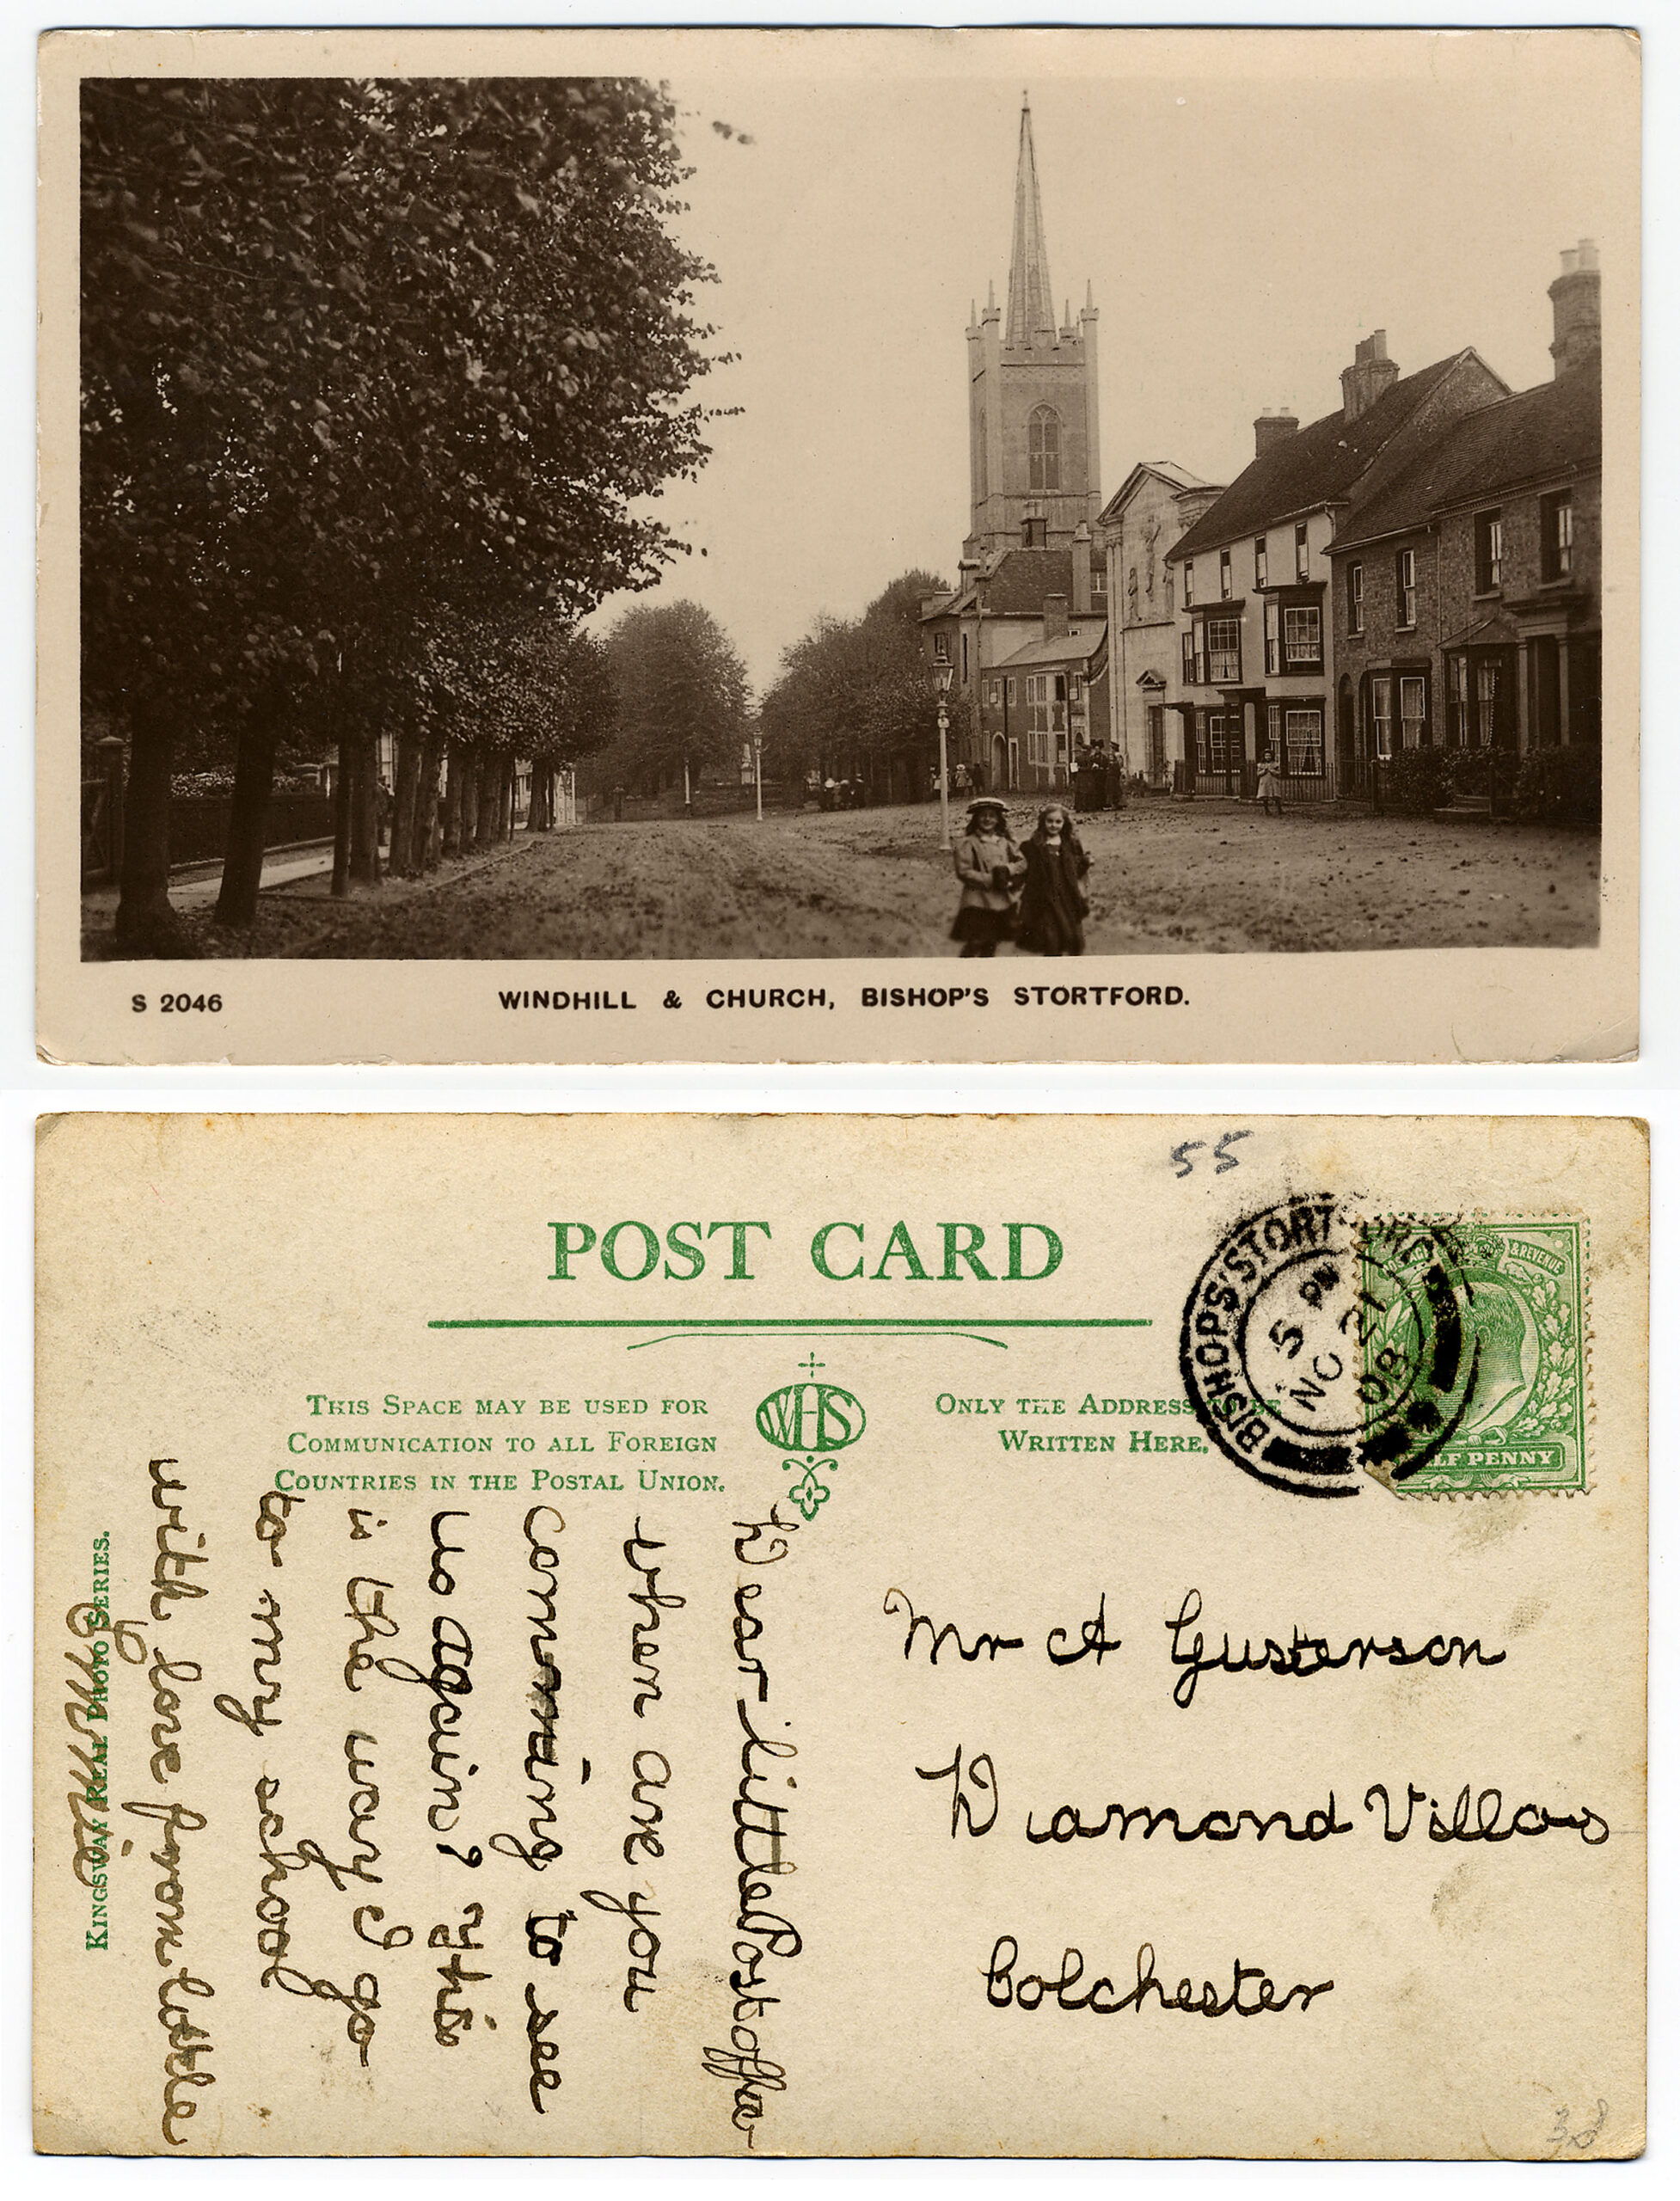 S 2046
WINDHILL & CHURCH, BISHOP'S STORTFORD.
55
POST CARD
THIS SPACE MAY BE USED FOR
COMMUNICATION TO ALL FOREIGN
COUNTRIES IN THE POSTAL UNION.
WHS
ONLY THE ADDRESS TO BE
WRITTEN HERE.
BISHOPS STORTFORD
5 PM
NO 21
08
& REVENUE
HALF PENNY
Dear little Post office
when are you
comming to see
us again? This
is the way I go
to my school
with love from little
Emmie
KINGSWAY REAL PHOTO SERIES.
Mr A Gusterson
Diamond Villas
Colchester
38